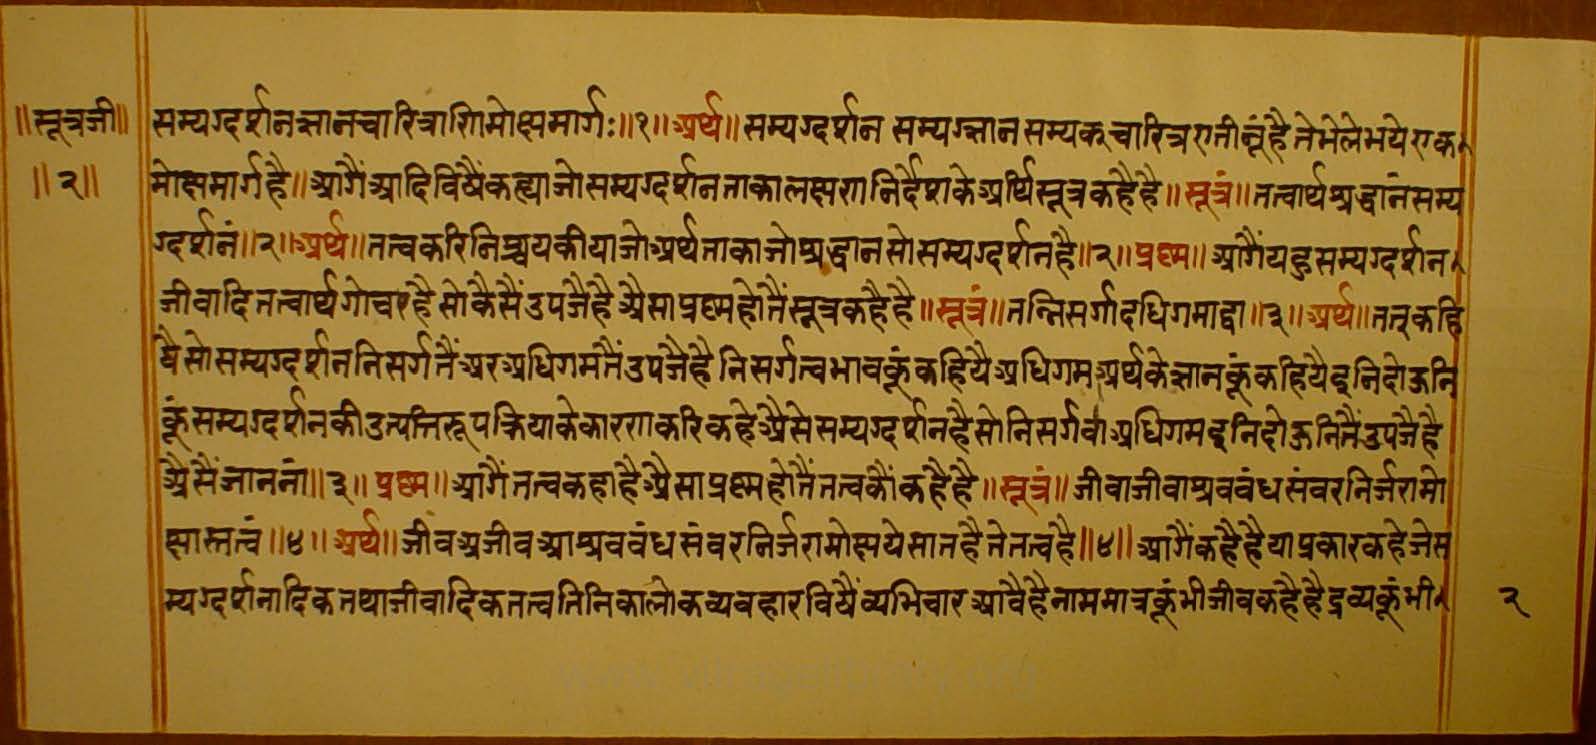 ॥सूत्रजी॥
॥२॥
सम्यग्दर्शनज्ञानचारित्राणिमोक्षमार्गः॥१॥अर्थ॥सम्यग्दर्शन सम्यग्ज्ञान सम्यक्चारित्र ए तीनूं है ते भेले भये एक
मोक्षमार्ग है॥आगैं आदिविषैं कह्या जो सम्यग्दर्शन ताका लक्षण निर्देश के अर्थि सूत्र कहै है॥सूत्रं॥तत्वार्थश्रद्धानं सम्य
ग्दर्शनं॥२॥अर्थ॥तत्व करि निश्चय कीया जो अर्थ ताका जो श्रद्धान सो सम्यग्दर्शन है॥२॥प्रश्न॥आगैं यहु सम्यग्दर्शन
जीवादि तत्वार्थगोचर है सो कैसैं उपजै है अैसा प्रश्न होतैं सूत्र कहै है॥सूत्रं॥तन्निसर्गादधिगमाद्वा॥३॥अर्थ॥तत् कहि
यै सो सम्यग्दर्शन निसर्गतैं अर अधिगमतैं उपजै है निसर्ग त्वभावकूं कहियै अधिगम अर्थ के ज्ञानकूं कहियै इनि दोऊनि
कूं सम्यग्दर्शन की उत्पत्तिरूप क्रिया के कारण करि कहे अैसे सम्यग्दर्शन है सो निसर्ग वा अधिगम इनि दोऊनितैं उपजै है
अैसैं जाननां॥३॥प्रश्न॥आगैं तत्व कहा है अैसा प्रश्न होतैं तत्वकौं कहै है॥सूत्रं॥जीवाजीवाश्रवबंधसंवरनिर्जरामो
क्षास्तत्वं॥४॥अर्थ॥जीव अजीव आश्रव बंध संवर निर्जरा मोक्ष ये सात है ते तत्व है॥४॥आगैं कहै है या प्रकार कहे जे स
म्यग्दर्शनादिक तथा जीवादिक तत्व तिनिका लोकव्यवहारविषैं व्यभिचार आवै है नाममात्रकूं भी जीव कहै है द्रव्यकूं भी
२